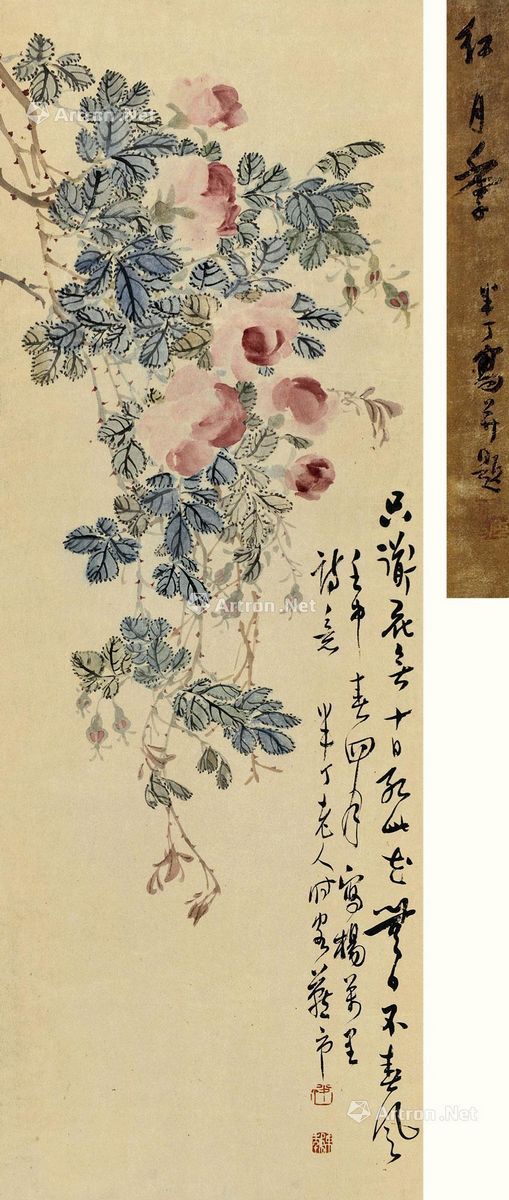 只道花無十日紅此花無日不春風
壬申春四月寫楊萬里
詩意 半丁老人時客燕市
紅月季 半丁寫并題
Artron.Net
Artron.Net
Artron.Net
Artron.Net